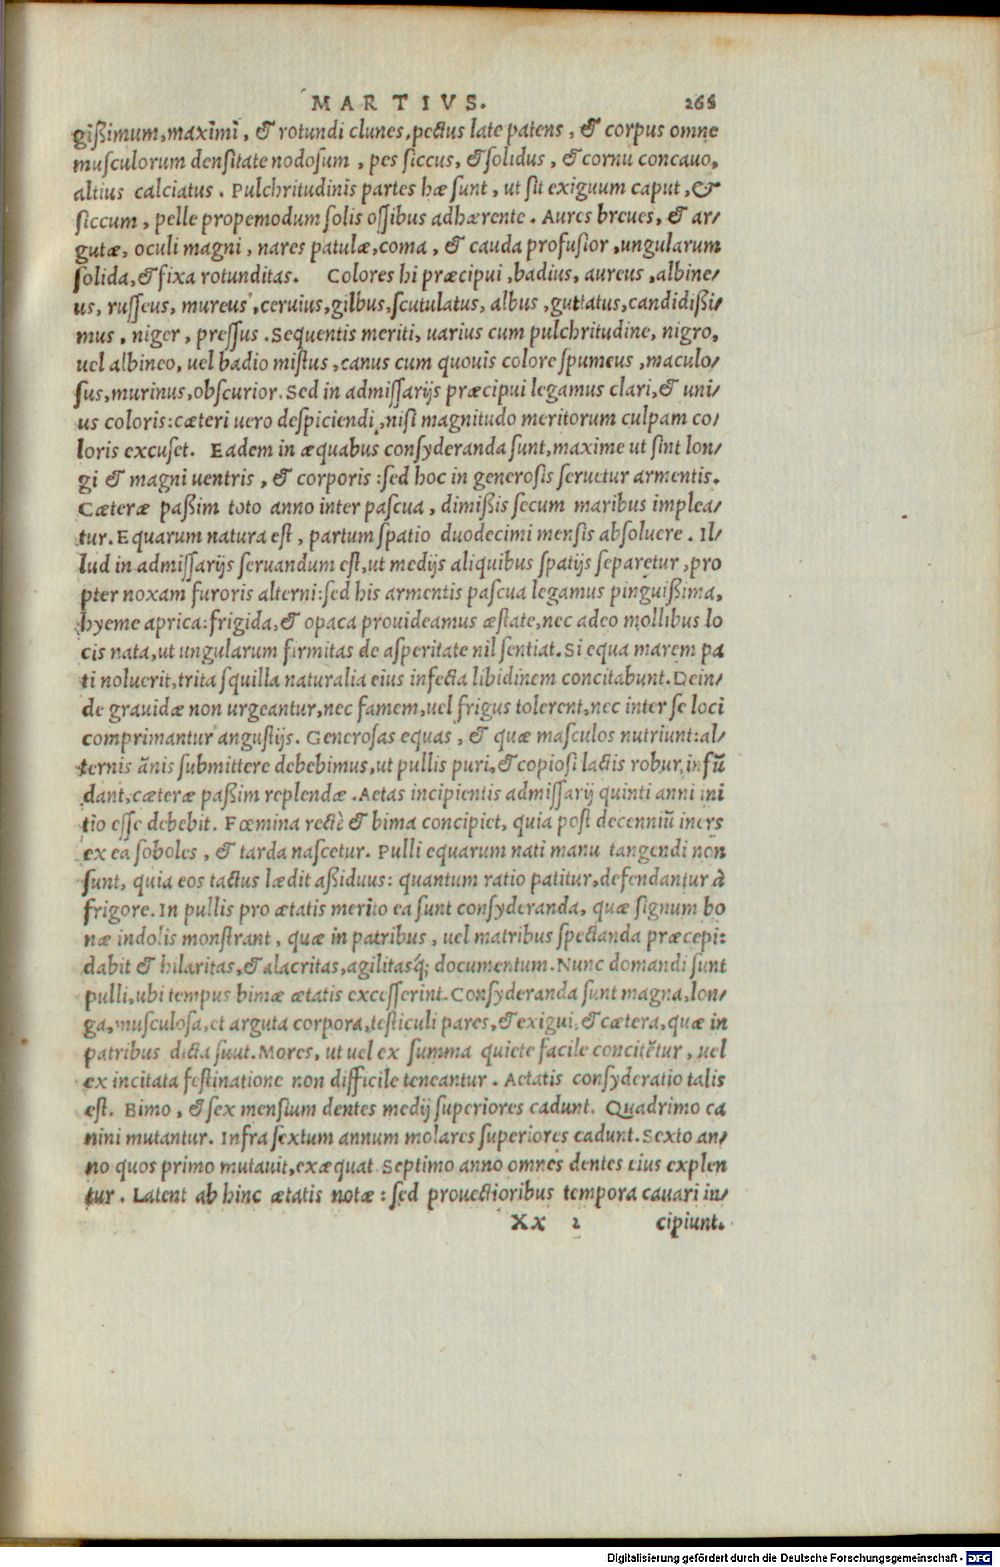 MARTIVS. 268
gißimum, maximi, & rotundi clunes, pectus late patens, & corpus omne
musculorum densitate nodosum, pes siccus, & solidus, & cornu concauo,
altius calciatus. Pulchritudinis partes hæ sunt, ut sit exiguum caput, &
siccum, pelle propemodum solis ossibus adhærente. Aures breues, & ar/
gutæ, oculi magni, nares patulæ, coma, & cauda profusior, ungularum
solida, & fixa rotunditas. Colores hi præcipui, badius, aureus, albine/
us, russeus, mureus, ceruius, gilbus, scutulatus, albus, guttatus, candidißi/
mus, niger, pressus. Sequentis meriti, uarius cum pulchritudine, nigro,
uel albineo, uel badio mistus, canus cum quouis colore spumeus, maculo/
sus, murinus, obscurior. Sed in admissarijs præcipui legamus clari, & uni/
us coloris: cæteri uero despiciendi, nisi magnitudo meritorum culpam co/
loris excuset. Eadem in æquabus consyderanda sunt, maxime ut sint lon/
gi & magni uentris, & corporis: sed hoc in generosis seruetur armentis.
Cæteræ paßim toto anno inter pascua, dimißis secum maribus implea/
tur. Equarum natura est, partum spatio duodecimi mensis absoluere. Il/
lud in admissarijs seruandum est, ut medijs aliquibus spatijs separetur, pro
pter noxam furoris alterni: sed his armentis pascua legamus pinguißima,
hyeme aprica: frigida, & opaca prouideamus æstate, nec adeo mollibus lo
cis nata, ut ungularum firmitas de asperitate nil sentiat. Si equa marem pa
ti noluerit, trita squilla naturalia eius infecta libidinem concitabunt. Dein/
de grauidæ non urgeantur, nec famem, uel frigus tolerent, nec inter se loci
comprimantur angustijs. Generosas equas, & quæ masculos nutriunt: al/
ternis ānis submittere debebimus, ut pullis puri, & copiosi lactis robur infū
dant, cæteræ paßim replendæ. Aetas incipientis admissarij quinti anni ini
tio esse debebit. Fœmina rectè & bima concipiet, quia post decenniū iners
ex ea soboles, & tarda nascetur. Pulli equarum nati manu tangendi non
sunt, quia eos tactus lædit aßiduus: quantum ratio patitur, defendantur à
frigore. In pullis pro ætatis merito ea sunt consyderanda, quæ signum bo
næ indolis monstrant, quæ in patribus, uel matribus spectanda præcepi:
dabit & hilaritas, & alacritas, agilitasq́; documentum. Nunc domandi sunt
pulli, ubi tempus bimæ ætatis excesserint. Consyderanda sunt magna, lon/
ga, musculosa, et arguta corpora, testiculi pares, & exigui, & cætera, quæ in
patribus dicta suut. Mores, ut uel ex summa quiete facile concitētur, uel
ex incitata festinatione non difficile teneantur. Aetatis consyderatio talis
est. Bimo, & sex mensium dentes medij superiores cadunt. Quadrimo ca
nini mutantur. Infra sextum annum molares superiores cadunt. Sexto an/
no quos primo mutauit, exæquat. Septimo anno omnes dentes eius explen
tur. Latent ab hinc ætatis notæ: sed prouectioribus tempora cauari in/
Xx 2 cipiunt.
Digitalisierung gefördert durch die Deutsche Forschungsgemeinschaft - DFG